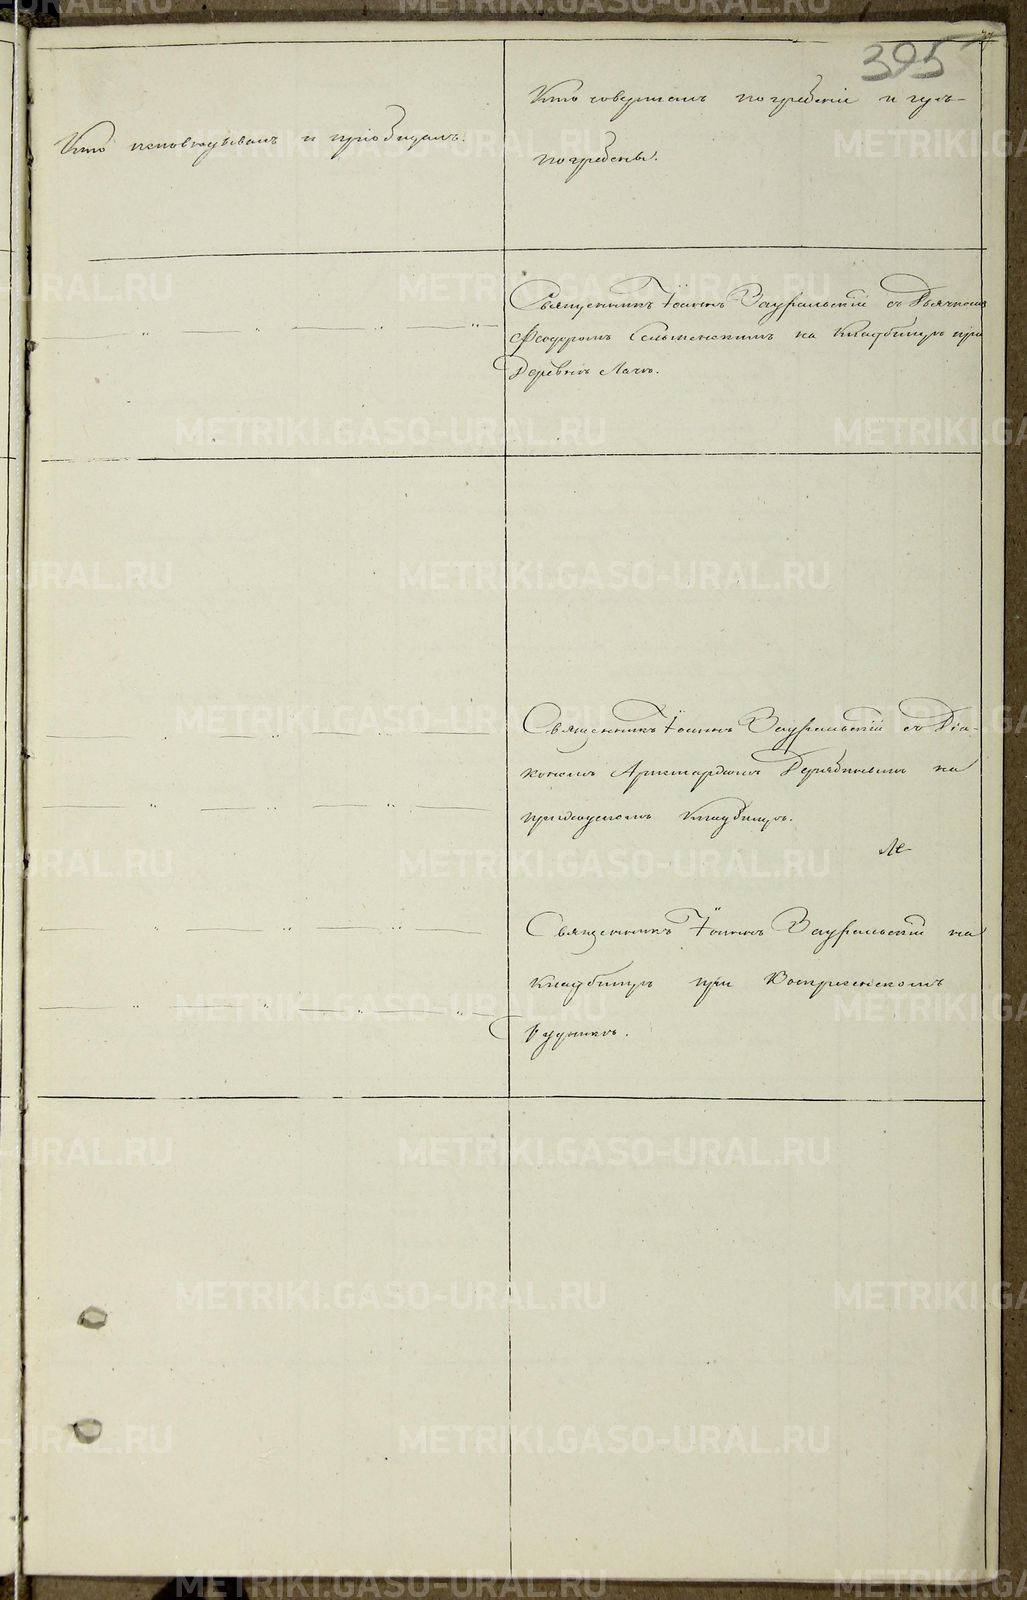 395
Кто исповѣдывалъ и пріобщалъ.
Кто совершалъ погребеніе и гдѣ
погребены.
Священникъ Іоаннъ Зауральскій съ Дьячкомъ
Феодоромъ на кладбищѣ при
Деревнѣ Лачѣ.
Священникъ Іоаннъ Зауральскій съ Діа-
кономъ на
приходскомъ кладбищѣ.
Священникъ Іоаннъ Зауральскій на
кладбищѣ при Воскресенскомъ
рудникѣ.
METRIKI.GASO-URAL.RU